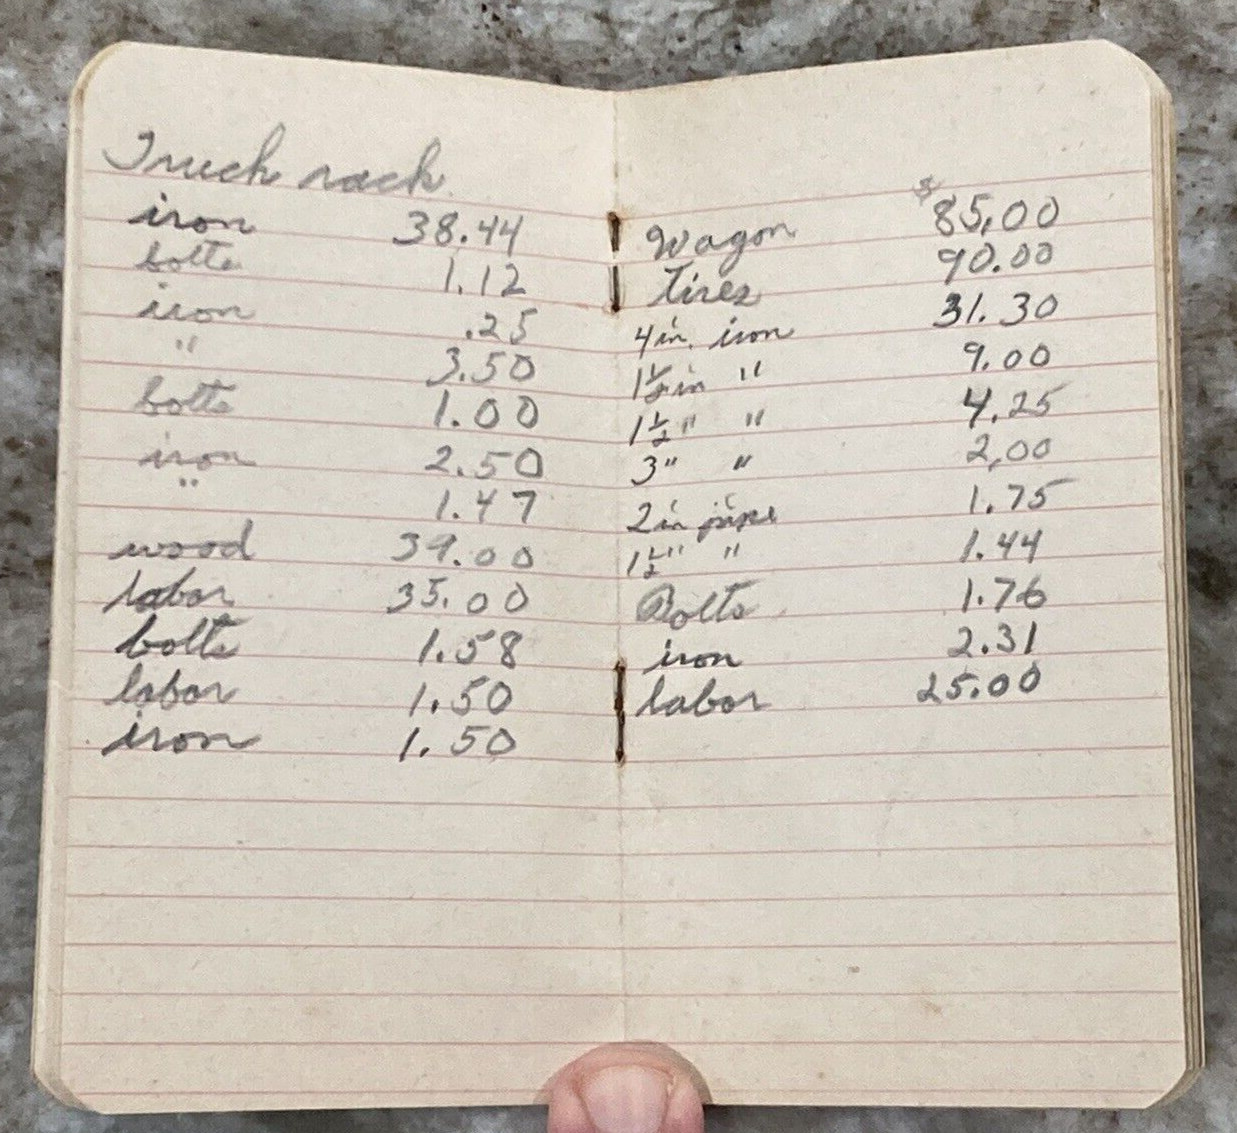 Truck rack
iron 38.44
bolts 1.12
iron .25
" 3.50
bolts 1.00
iron 2.50
" 1.47
wood 39.00
labor 35.00
bolts 1.58
labor 1.50
iron 1.50
Wagon $85,00
Tires 90.00
4 in. iron 31.30
1½ in " 9.00
1½" " 4.25
3" " 2,00
2 in pipe 1.75
1½" " 1.44
Bolts 1.76
iron 2.31
labor 25.00